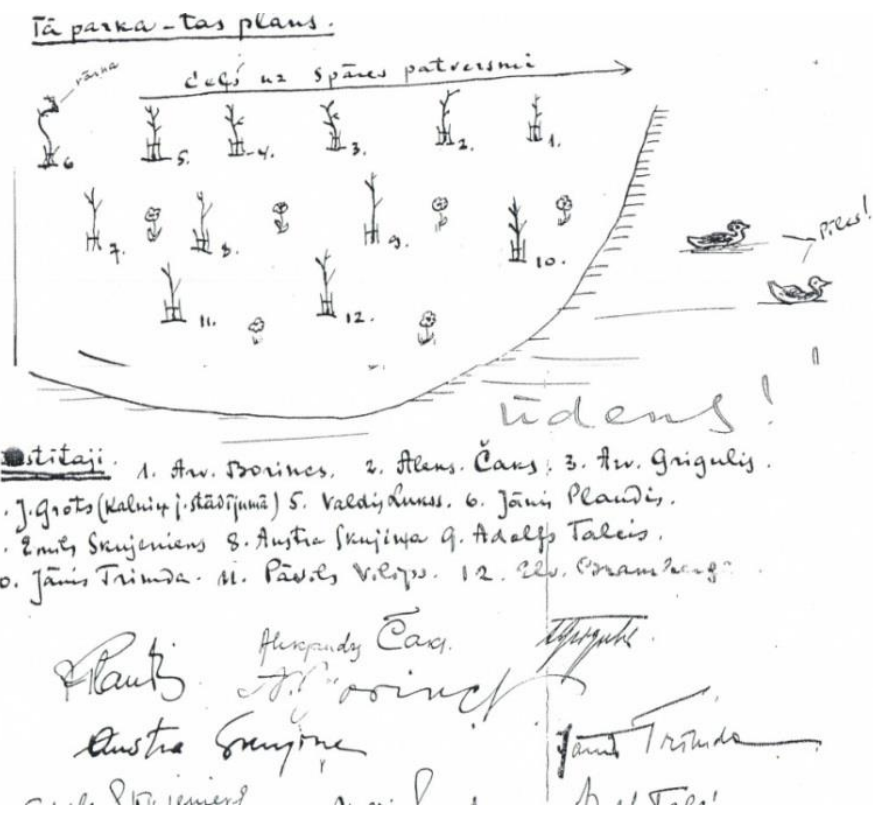 Tā parka-tas plāns.
vārna
Ceļš uz Spāres patversmi
6 5. 4. 3. 2. 1.
7. 8. 9. 10.
Pīles!
11. 12.
ūdens!
1. Arv. Borincs. 2. Aleks. Čaks, 3. Arv. Grigulis.
. J. Grots (Kalniņ j. stādījumā) 5. Valdis Lukss. 6. Jānis Plaudis.
. Emils Skujenieks 8. Austra Skujiņa 9. Adolfs Talcis.
0. Jānis Trimda. 11. Pāvils Vīlips. 12.
Plaudis Aleksandrs Čaks. AGrigulis
A. Borincs
Austra Skujiņa Jānis Trimda